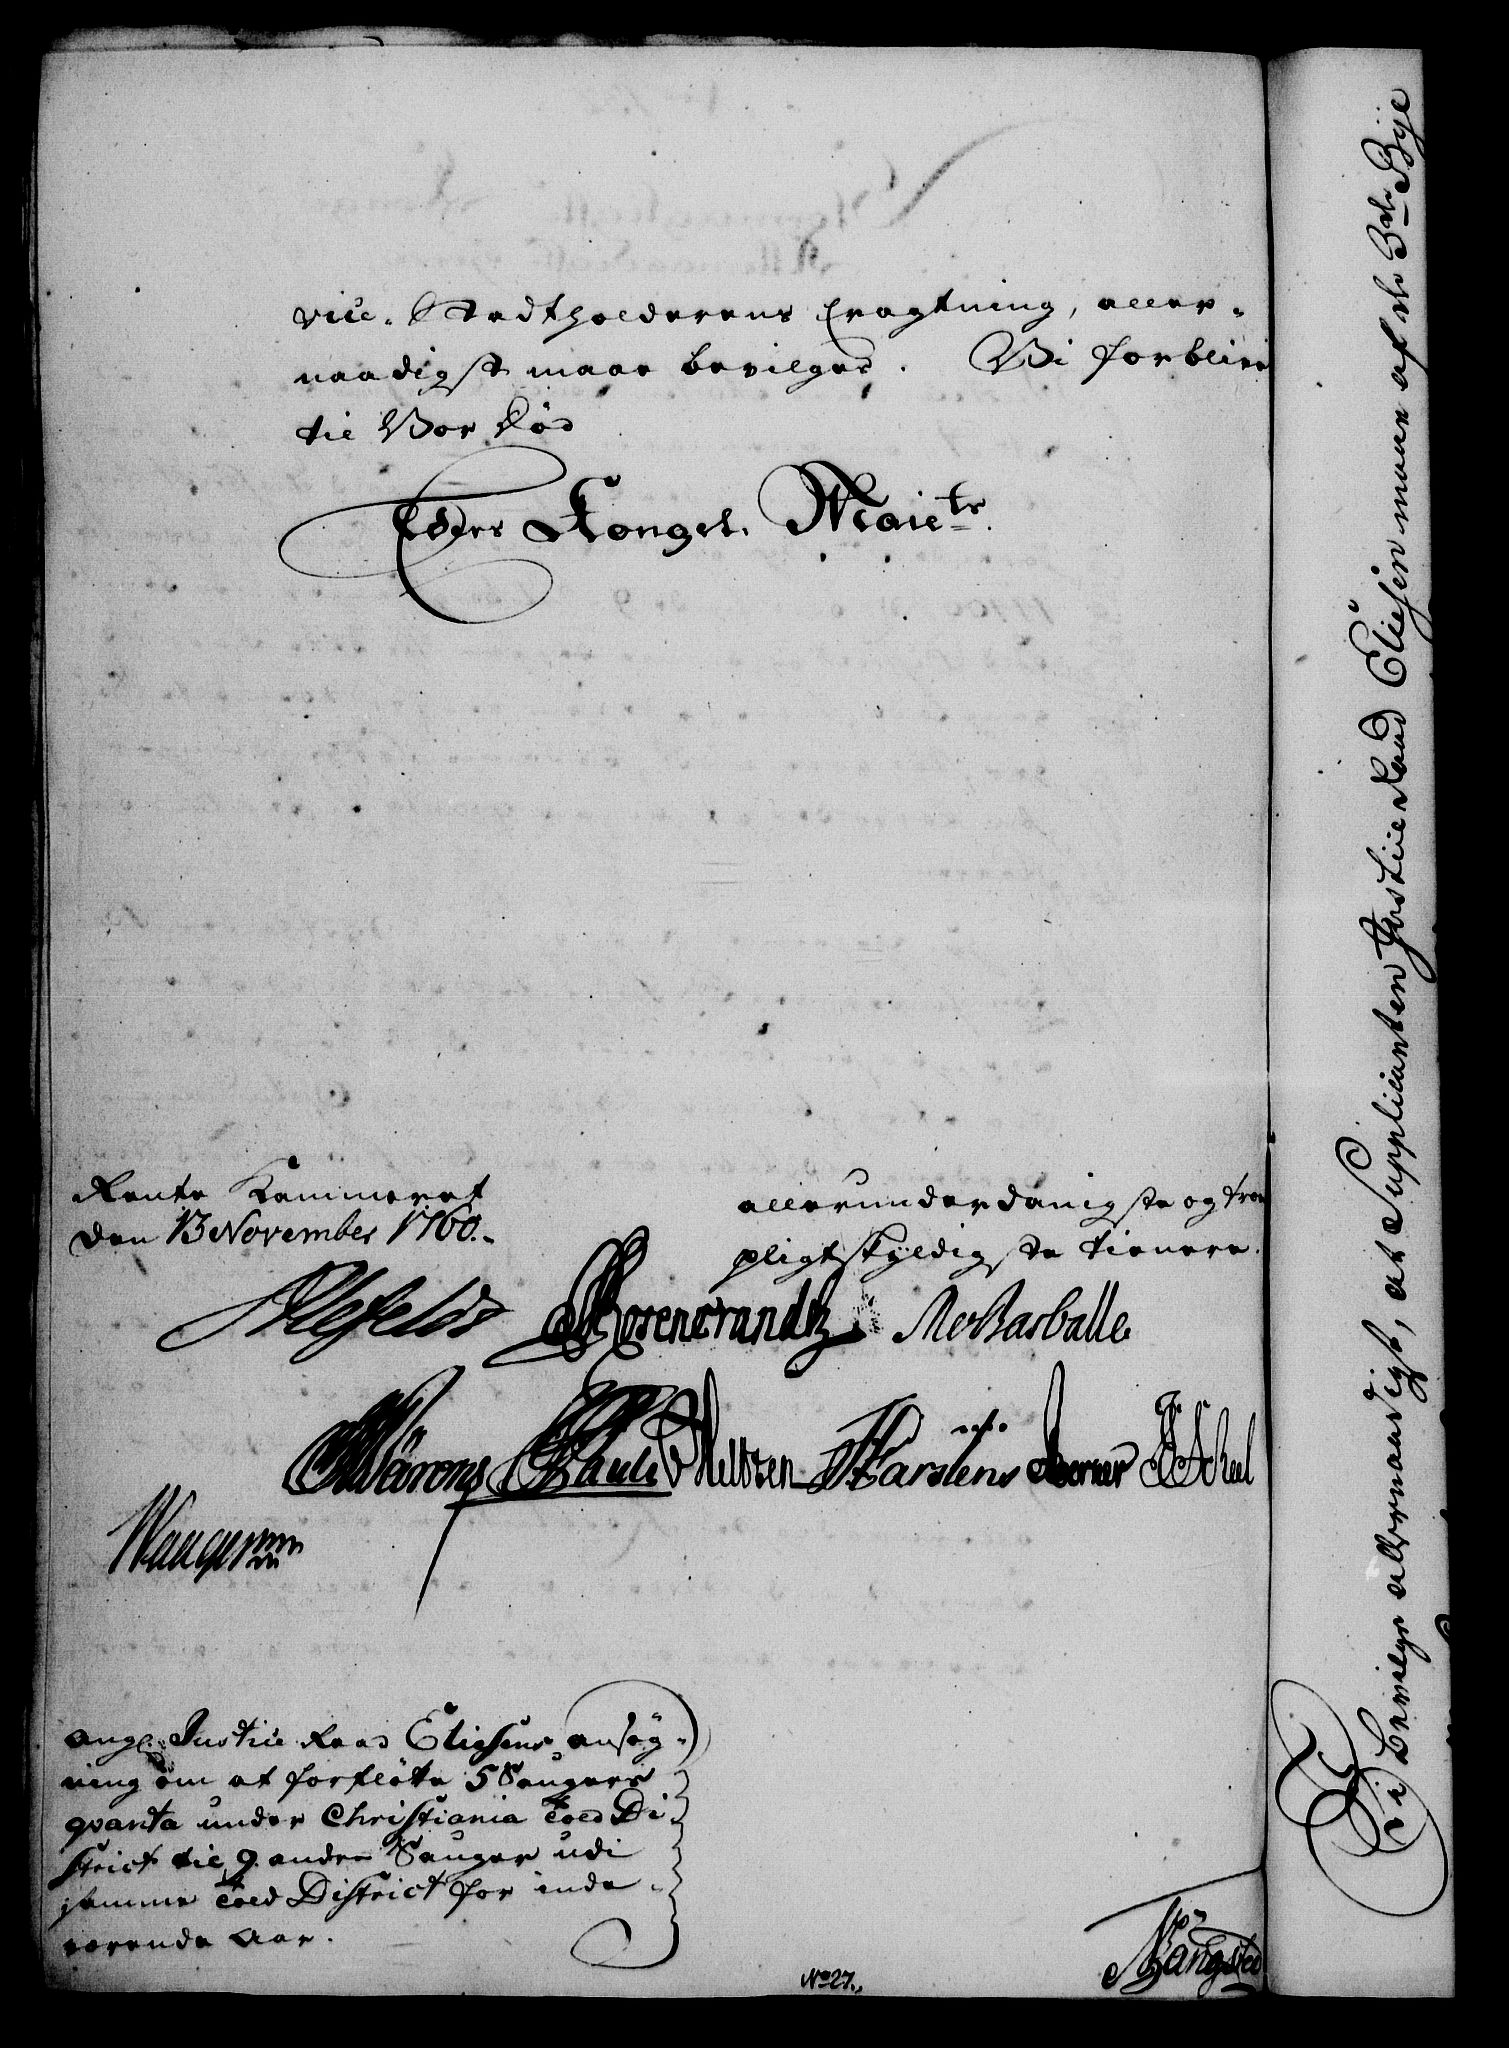 vice-Stadtholderens Eragtning, aller-
naadigst maae bevilges. Vi forblive
til Vor Død
Eders Kongel. Maiets
Rente Kammeret
den 13 November 1760.
allerunderdanigste og troe
pligtskyldigste tienere.
Alefeldt Rosencrantz Barballe
Wärens Pauli Heltzen Karstens Berner Skeel
Waagensen
ang. Justice Raad Eliesens ansøg-
ning om at forfløtte 5 Saugers
qvanta under Christiania Told Di-
strict til 9 andre Sauger udi
samme Told District for inde-
værende Aar.
No 27.
Bangsted
Vi bevilge allernaadigst, at Supplicanten Justice Raad Eliesen maae af de 3de Bye